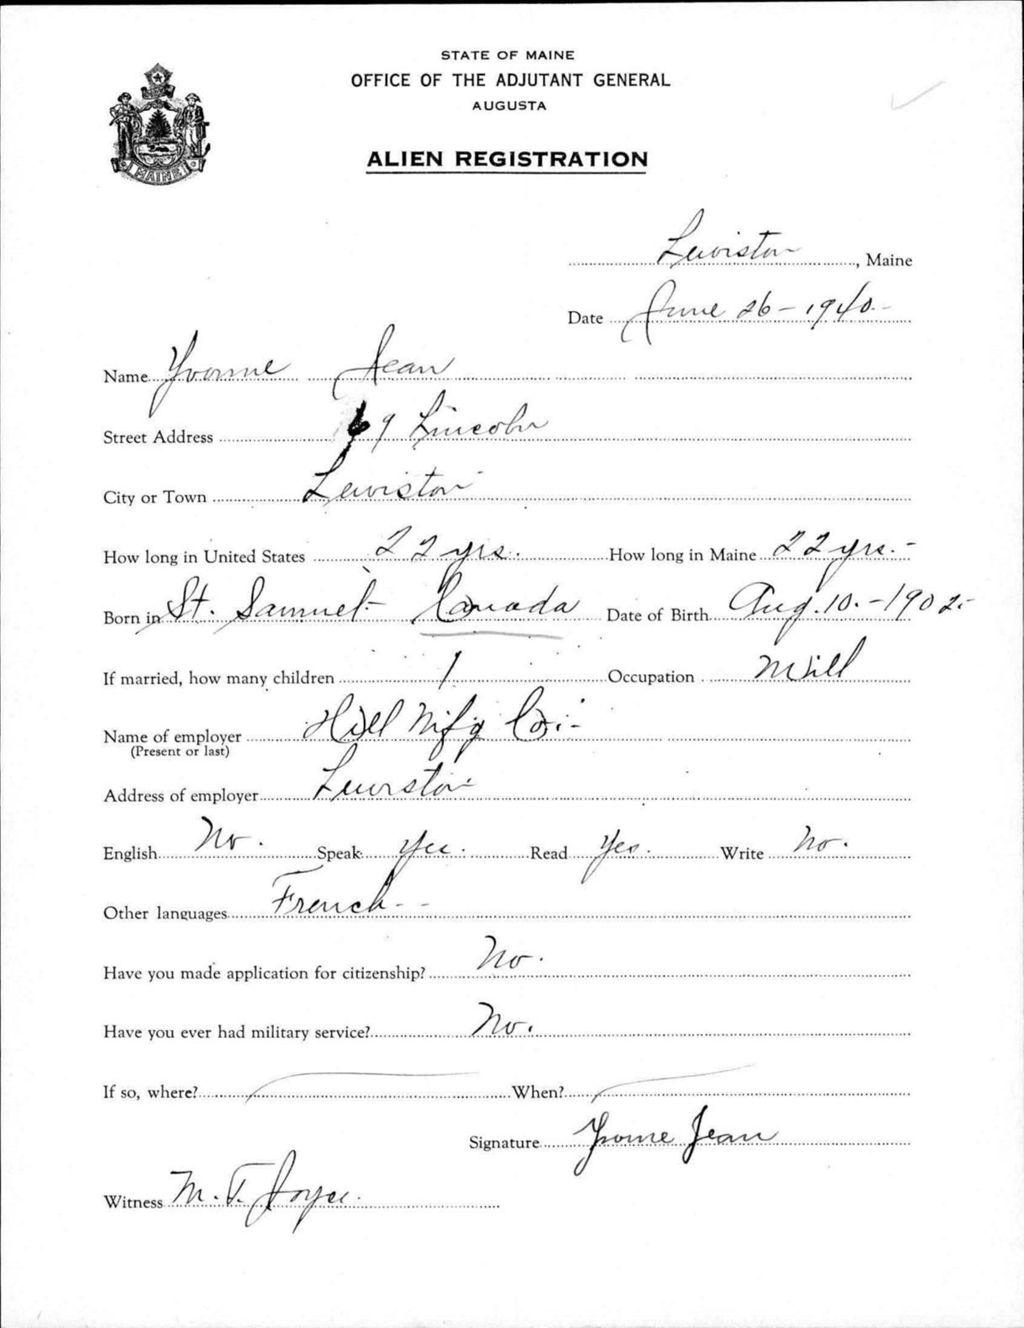 STATE OF MAINE
OFFICE OF THE ADJUTANT GENERAL
AUGUSTA
MAINE
ALIEN REGISTRATION
Lewiston, Maine
Date June 26-1940.-
Name Yvonne Jean
Street Address 69 Lincoln
City or Town Lewiston
How long in United States 22 yrs. How long in Maine 22 yrs.-
Born in St. Samuel- Canada Date of Birth Aug. 10.-1902.-
If married, how many children 1 Occupation Mill
Name of employer Hill Mfg Co.-
(Present or last)
Address of employer Lewiston-
English No. Speak Yes. Read Yes. Write No.
Other languages French--
Have you made application for citizenship? No.
Have you ever had military service? No.
If so, where? When?
Signature Yvonne Jean
Witness M. T. Joyce.